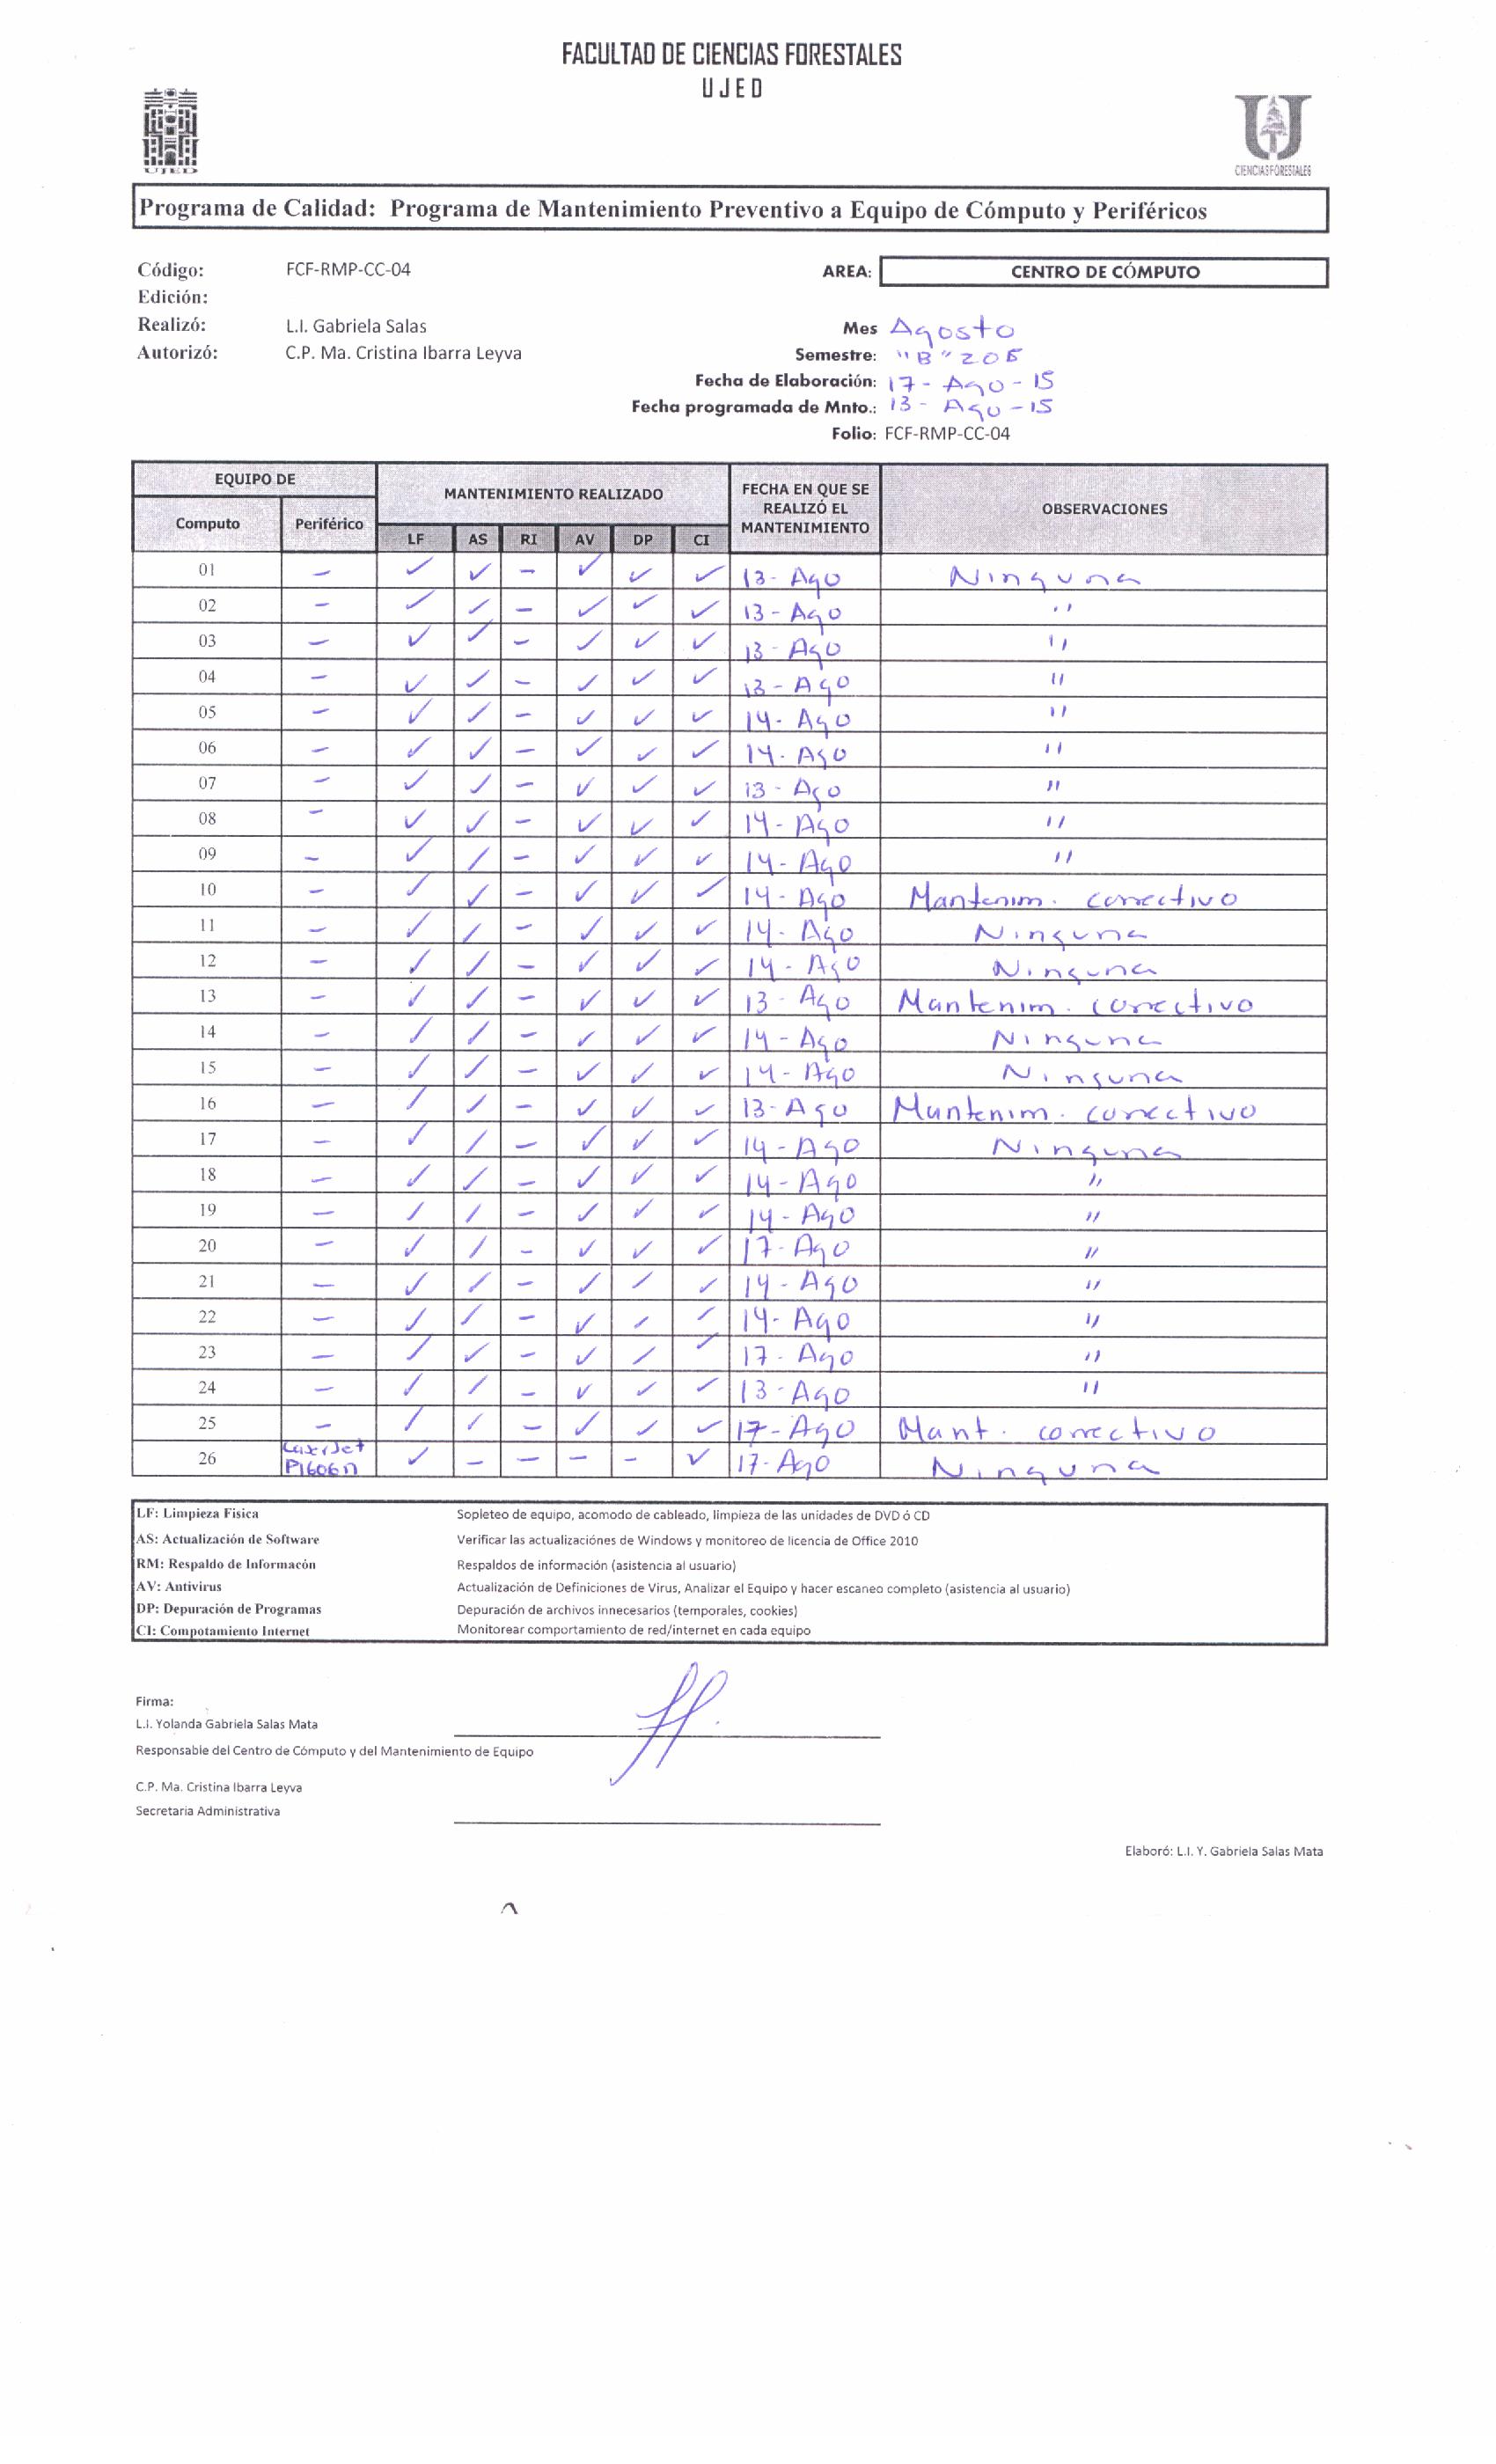 FACULTAD DE CIENCIAS FORESTALES
UJED
UJED
CIENCIAS FORESTALES
Programa de Calidad: Programa de Mantenimiento Preventivo a Equipo de Cómputo y Periféricos
Código: FCF-RMP-CC-04 AREA: CENTRO DE CÓMPUTO
Edición:
Realizó: L.I. Gabriela Salas Mes Agosto
Autorizó: C.P. Ma. Cristina Ibarra Leyva Semestre: "B"
Fecha de Elaboración: 17 - Ago - 15
Fecha programada de Mnto.: 13 - Ago - 15
Folio: FCF-RMP-CC-04
EQUIPO DE MANTENIMIENTO REALIZADO FECHA EN QUE SE REALIZÓ EL MANTENIMIENTO OBSERVACIONES
Computo Periférico LF AS RI AV DP CI
01 – ✓ ✓ – ✓ ✓ ✓ 13- Ago Ninguna
02 – ✓ ✓ – ✓ ✓ ✓ 13- Ago "
03 – ✓ ✓ – ✓ ✓ ✓ 13- Ago "
04 – ✓ ✓ – ✓ ✓ ✓ 13- Ago "
05 – ✓ ✓ – ✓ ✓ ✓ 14- Ago "
06 – ✓ ✓ – ✓ ✓ ✓ 14- Ago "
07 – ✓ ✓ – ✓ ✓ ✓ 13- Ago "
08 – ✓ ✓ – ✓ ✓ ✓ 14- Ago "
09 – ✓ ✓ – ✓ ✓ ✓ 14- Ago "
10 – ✓ ✓ – ✓ ✓ ✓ 14- Ago Mantenim. correctivo
11 – ✓ ✓ – ✓ ✓ ✓ 14- Ago Ninguna
12 – ✓ ✓ – ✓ ✓ ✓ 14- Ago Ninguna
13 – ✓ ✓ – ✓ ✓ ✓ 13- Ago Mantenim. correctivo
14 – ✓ ✓ – ✓ ✓ ✓ 14- Ago Ninguna
15 – ✓ ✓ – ✓ ✓ ✓ 14- Ago Ninguna
16 – ✓ ✓ – ✓ ✓ ✓ 13- Ago Mantenim. correctivo
17 – ✓ ✓ – ✓ ✓ ✓ 14- Ago Ninguna
18 – ✓ ✓ – ✓ ✓ ✓ 14- Ago "
19 – ✓ ✓ – ✓ ✓ ✓ 14- Ago "
20 – ✓ ✓ – ✓ ✓ ✓ 17- Ago "
21 – ✓ ✓ – ✓ ✓ ✓ 14- Ago "
22 – ✓ ✓ – ✓ ✓ ✓ 14- Ago "
23 – ✓ ✓ – ✓ ✓ ✓ 17- Ago "
24 – ✓ ✓ – ✓ ✓ ✓ 13- Ago "
25 – ✓ ✓ – ✓ ✓ ✓ 17- Ago Mant. correctivo
26 LaserJet P1606n ✓ – – – – ✓ 17- Ago Ninguna
LF: Limpieza Fisica Sopleteo de equipo, acomodo de cableado, limpieza de las unidades de DVD ó CD
AS: Actualización de Software Verificar las actualizaciónes de Windows y monitoreo de licencia de Office 2010
RM: Respaldo de Informacón Respaldos de información (asistencia al usuario)
AV: Antivirus Actualización de Definiciones de Virus, Analizar el Equipo y hacer escaneo completo (asistencia al usuario)
DP: Depuración de Programas Depuración de archivos innecesarios (temporales, cookies)
CI: Compotamiento Internet Monitorear comportamiento de red/internet en cada equipo
Firma:
L.I. Yolanda Gabriela Salas Mata
Responsable del Centro de Cómputo y del Mantenimiento de Equipo
C.P. Ma. Cristina Ibarra Leyva
Secretaria Administrativa
Elaboró: L.I. Y. Gabriela Salas Mata